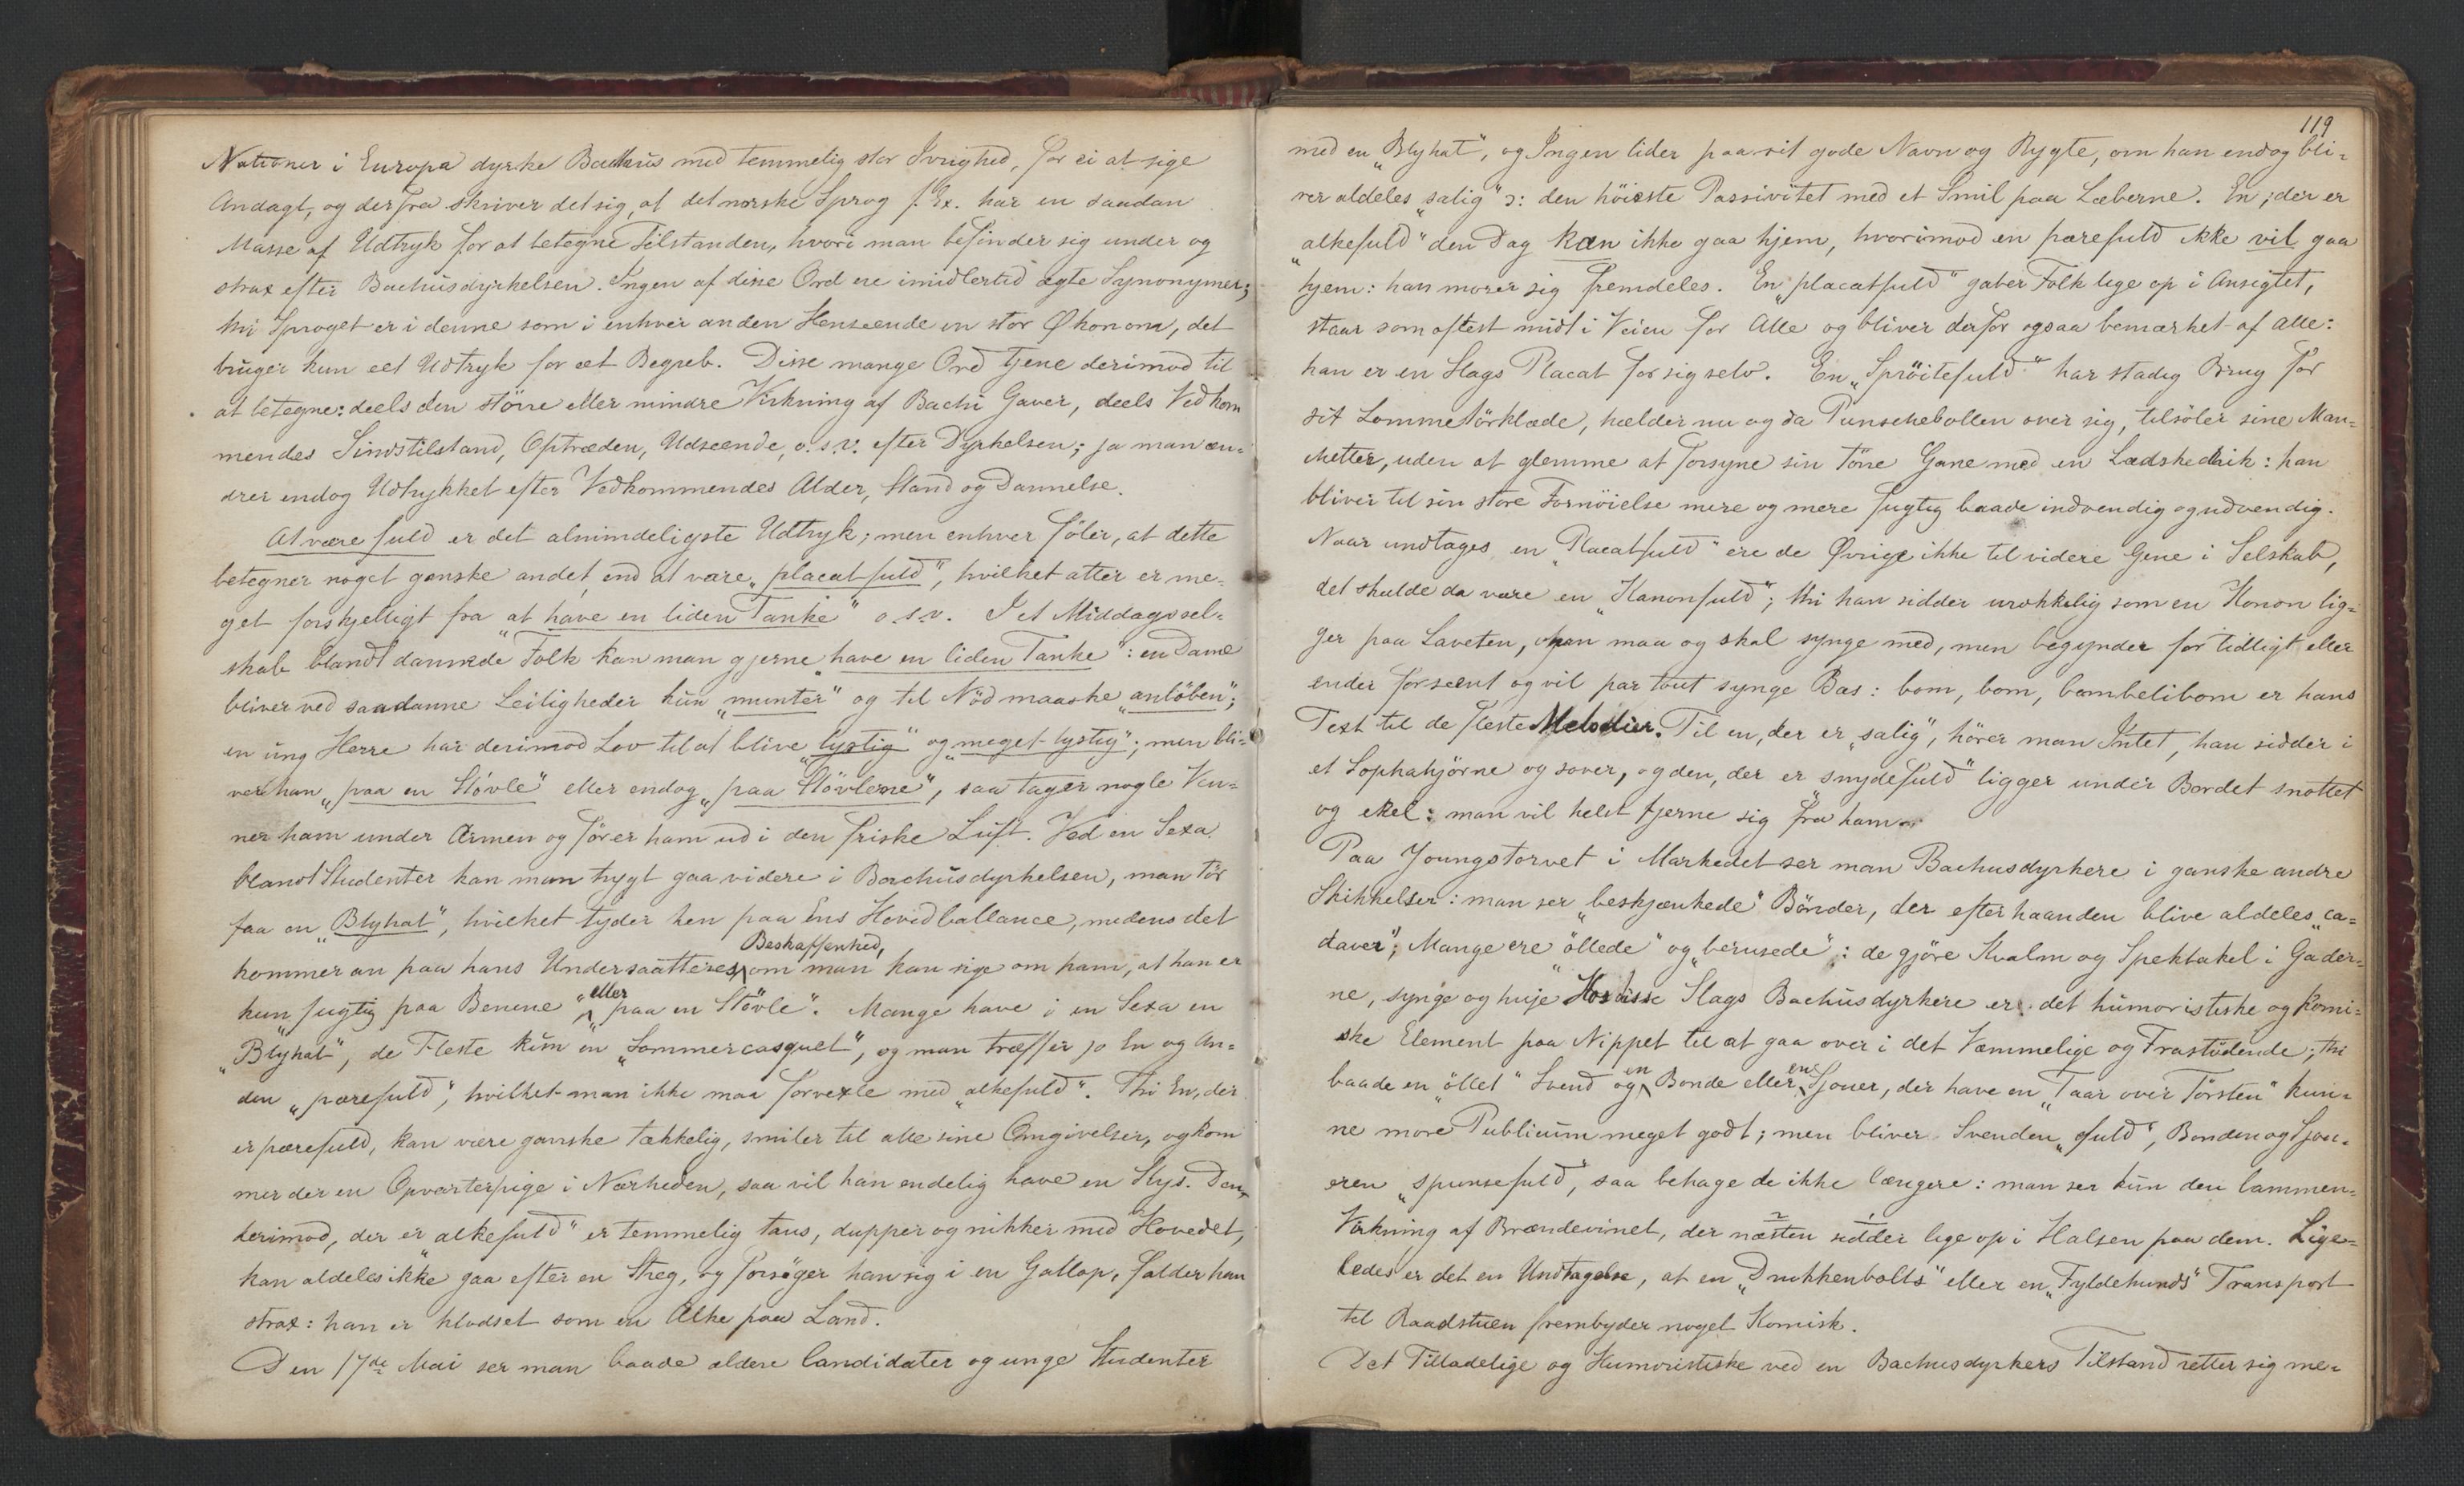 Nationer i Europa dyrke Bachus med temmelig stor Ivrighed, for ei at sige
Andagt, og derfra skriver det sig, at det norske Sprog f. Ex. har en saadan
Masse af Udtryk for at betegne Tilstanden, hvori man befinder sig under og
strax efter Bachusdyrkelsen. Ingen af disse Ord ere imidlertid ægte Synonymer;
thi Sproget er i denne som i enhver anden Henseende en stor Økonom, det
bruger kun eet Udtryk for eet Begreb. Disse mange Ord tjene derimod til
at betegne: deels den större eller mindre Virkning af Bachi Gaver, deels Vedkom
mendes Sindstilstand, Optræden, Udseende, o.s.v. efter Dyrkelsen; ja man æn-
drer endog Udtrykket efter Vedkommendes Alder, Stand og Dannelse.
At være fuld er det almindeligste Udtryk; men enhver föler, at dette
betegner noget ganske andet, end at være „placatfuld", hvilket atter er me-
get forskjelligt fra „at have en liden Tanke" o.s.v. I et Middagssel-
skab blandt dannede Folk kan man gjerne „have en liden Tanke": en Dame
bliver ved saadanne Leiligheder kun „munter" og til Nöd maaske „anlöben";
en ung Herre har derimod Lov til at blive „lystig" og „meget lystig"; men bli-
ver han „paa en Stövle" eller endog „paa Stövlerne", saa tager nogle Ven-
ner ham under Armen og förer ham ud i den friske Luft. Ved en Sexa
blandt Studenter kan man trygt gaa videre i Bachusdyrkelsen, man tör
faa en „Blyhat", hvilket tyder hen paa Ens Hovedballance, medens det
kommer an paa hans Undersaatteres Beskaffenhed, om man kan sige om ham, at han er
kun „fugtig paa Benene" eller „paa en Stövle". Mange have i en Sexa en
„Blyhat", de Fleste kun en „Sommercasquet", og man træffer jo En og An-
den „pærefuld", hvilket man ikke maa forvexle med „alkefuld". Thi En, der
er pærefuld, kan være ganske tækkelig, smiler til alle sine Omgivelser, og kom
mer der en Opvarterpige i Nærheden, saa vil han endelig have en Kys. Den,
derimod, der er „alkefuld" er temmelig taus, dupper og nikker med Hovedet,
kan aldeles ikke gaa efter en Streg, og forsöger han sig i en Gallop, falder han
strax: han er klodset som en Alke paa Land.
Den 17de Mai ser man baade ældere Candidater og unge Studenter
119
med en „Blyhat", og Ingen lider paa sit gode Navn og Rygte, om han endog bli-
ver aldeles „salig" ɔ: den höieste Passivitet med et Smil paa Læberne. En, der er
„alkefuld" den Dag kan ikke gaa hjem, hvorimod en pærefuld ikke vil gaa
hjem: han morer sig fremdeles. En „placatfuld" gaber Folk lige op i Ansigtet,
staar som oftest midt i Veien for Alle og bliver derfor ogsaa bemærket af Alle:
han er en Slags Placat for sig selv. En „Spröitefuld" har stadig Brug for
sit Lommetörklæde, hælder nu og da Punschebollen over sig, tilsöler sine Man-
chetter, uden at glemme at forsyne sin törre Gane med en Lædskedrik: han
bliver til sin store Fornöielse mere og mere fugtig baade indvendig og udvendig.
Naar undtages en „Placatfuld" ere de Øvrige ikke til videre Gene i Selskab,
det skulde da være en „Kanonfuld"; thi han sidder urokkelig som en Kanon lig-
ger paa Laveten, han maa og skal synge med, men begynder for tidligt eller
ender forseent og vil partout synge Bas: bom, bom, bambelibom er hans
Text til de fleste Melodier. Til en, der er „salig", hörer man Intet, han sidder i
et Sophahjörne og sover, og den, der er „snydefuld" ligger under Bordet snottet
og ekel: man vil helst fjerne sig fra ham.
Paa Youngstorvet i Markedet ser man Bachusdyrkere i ganske andre
Skikkelser: man ser „beskjænkede" Bönder, der efterhaanden blive aldeles „ca-
daver"; Mange ere „öllede" og „berusede": de gjöre Kvalm og Spektakel i Gader-
ne, synge og huje. Hos disse Slags Bachusdyrkere er det humoristiske og komi-
ske Element paa Nippet til at gaa over i det Væmmelige og Frastödende; thi
baade en „öllet" Svend og en Bonde eller en Sjouer, der have en „Taar over Törsten" kun-
ne more Publicum meget godt; men bliver Svenden „fuld", Bonden og Sjou-
eren „spunsefuld", saa behage de ikke længere: man ser kun den
Virkning af Brændevinet, der næsten sidder lige op i Halsen paa dem. Lige-
ledes er det en Undtagelse, at en „Drukkenbolts" eller en „Fyldehunds" Transport
til Raadstuen frembyder noget Komisk.
Det Tilladelige og Humoristiske ved en Bachusdyrkers Tilstand retter sig me-